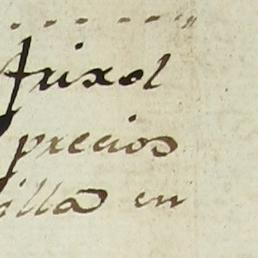 Frixol
precios
illa en